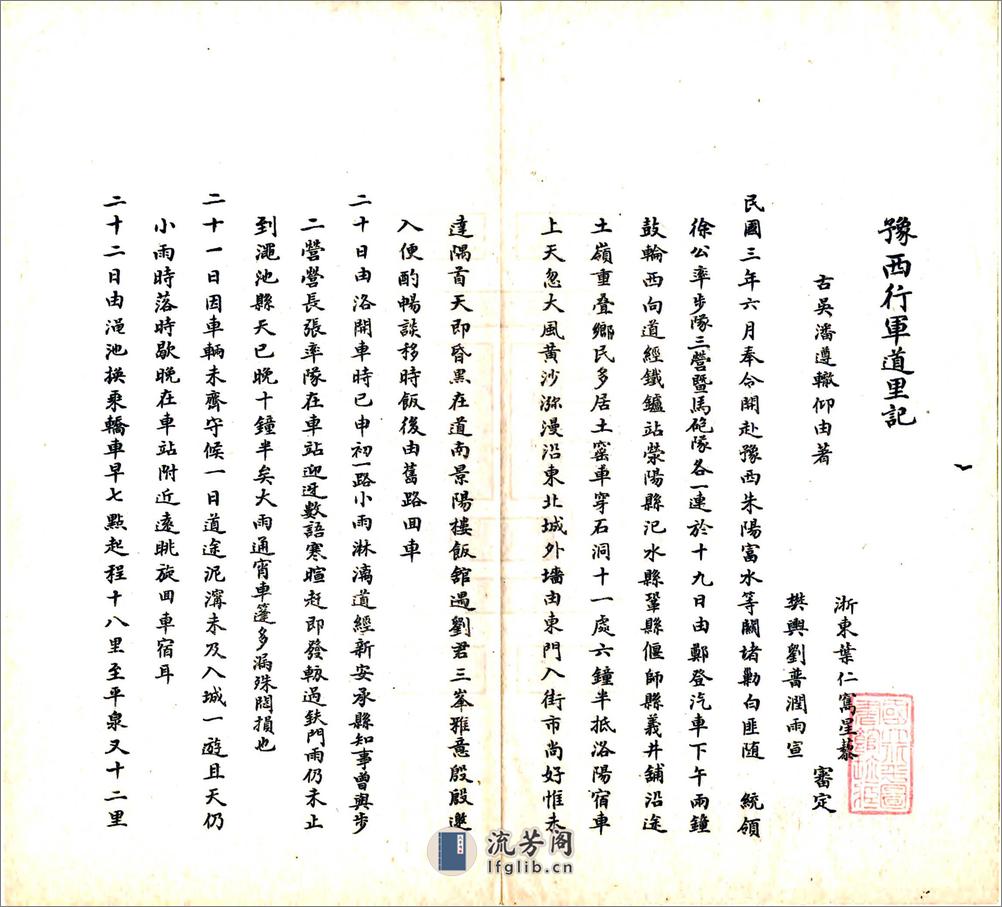 豫西行軍道里記
古吳潘遵轍仰由著
浙東葉仁寯星藜
樊輿劉薔潤雨宣
審定
民國三年六月奉令開赴豫西朱陽富水等關堵勦白匪随　統領
徐公率步隊三營暨馬砲隊各一連於十九日由鄭登汽車下午兩鐘
鼓輪西向道經鐵鑪站滎陽縣汜水縣鞏縣偃師縣義井鋪沿途
土嶺重叠鄉民多居土窰車穿石洞十一處六鐘半抵洛陽宿車
上天忽大風黄沙瀰漫沿東北城外墻由東門入街市尚好惟未
達隅首天即昏黑在道南景陽樓飯舘遇劉君三峯雅意殷殷邀
入便酌暢談移時飯後由舊路回車
二十日由洛開車時已申初一路小雨淋漓道經新安承縣知事曾與步
二營營長張率隊在車站迎迓數語寒暄赶即發軔過鉄門雨仍未止
到澠池縣天已晚十鐘半矣大雨通宵車篷多漏殊悶損也
二十一日因車輛未齊守候一日道途泥濘未及入城一遊且天仍
小雨時落時歇晚在車站附近遠眺旋回車宿耳
二十二日由澠池換乘轎車早七點起程十八里至平泉又十二里
流芳阁
lfglib.cn